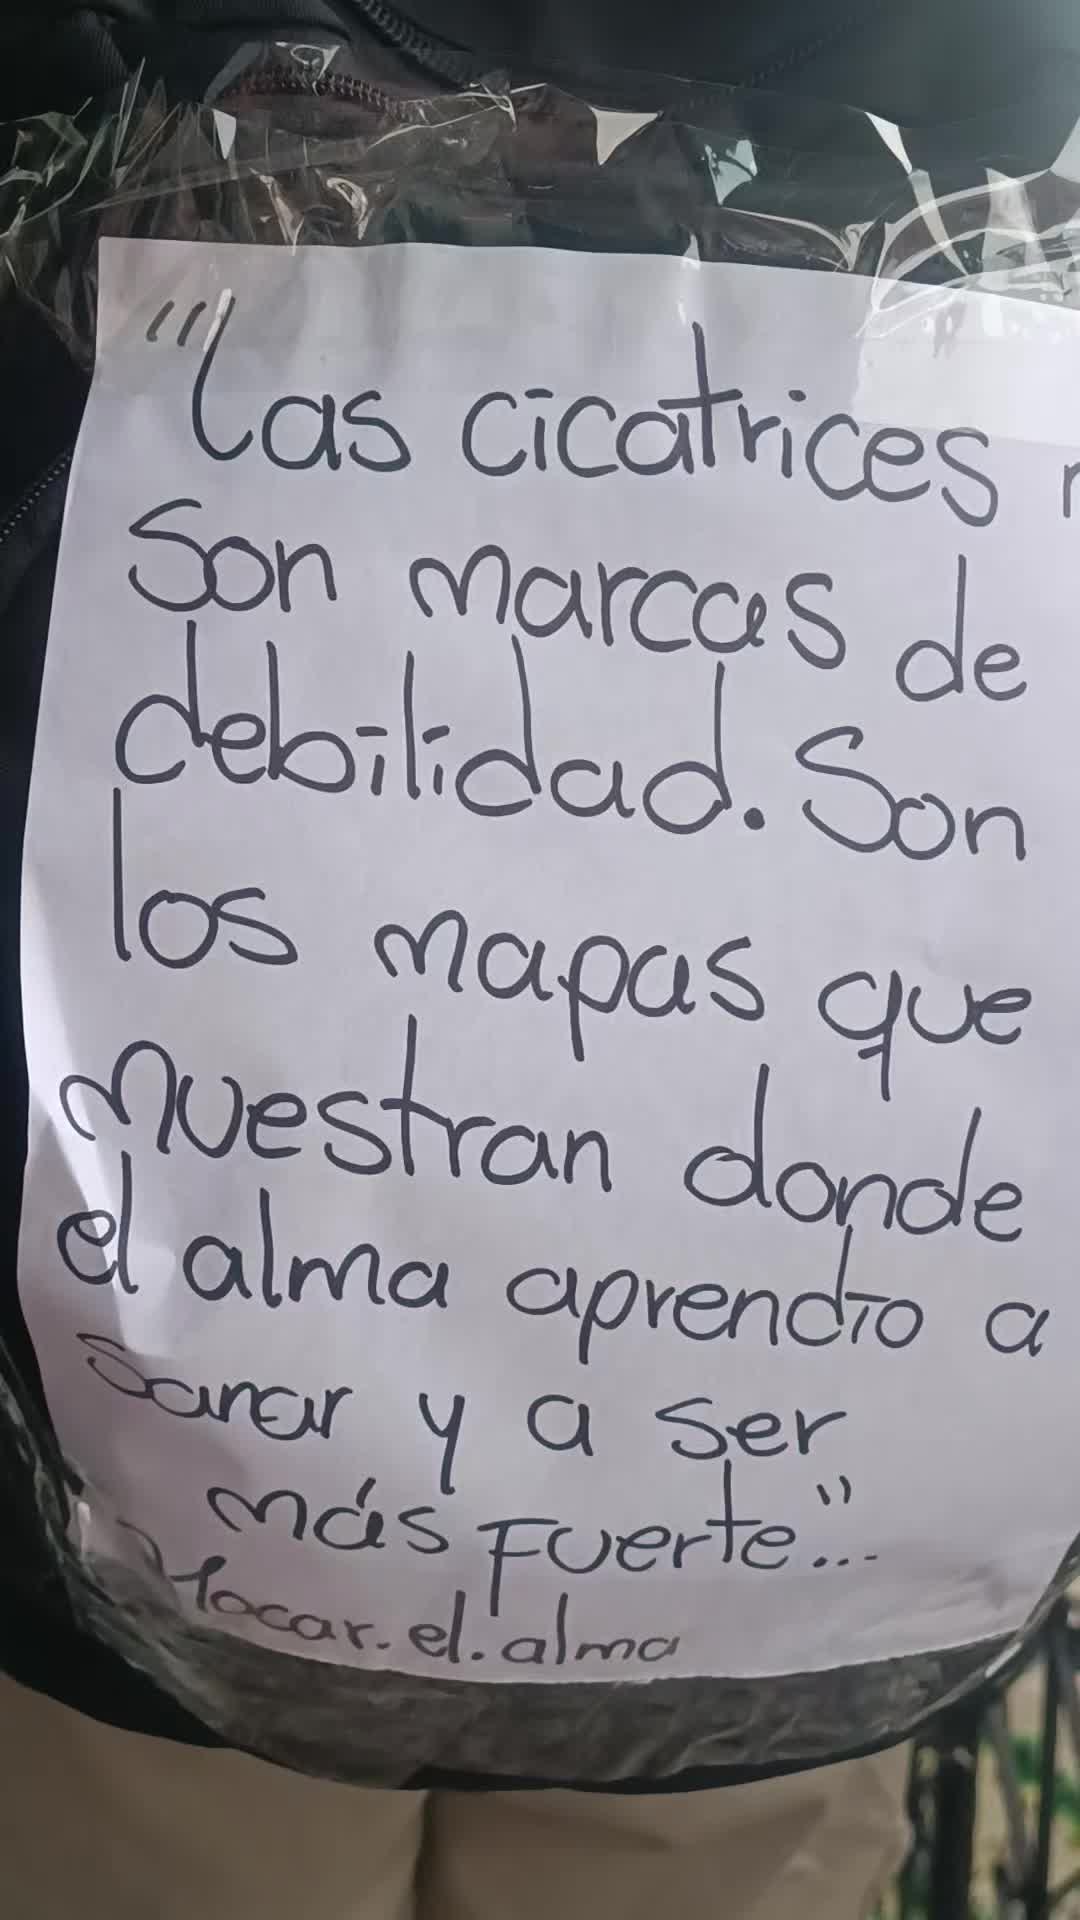 "Las cicatrices
son marcas de
debilidad. Son
los mapas que
muestran donde
el alma aprendio a
sanar y a ser
más fuerte"...
tocar.el.alma